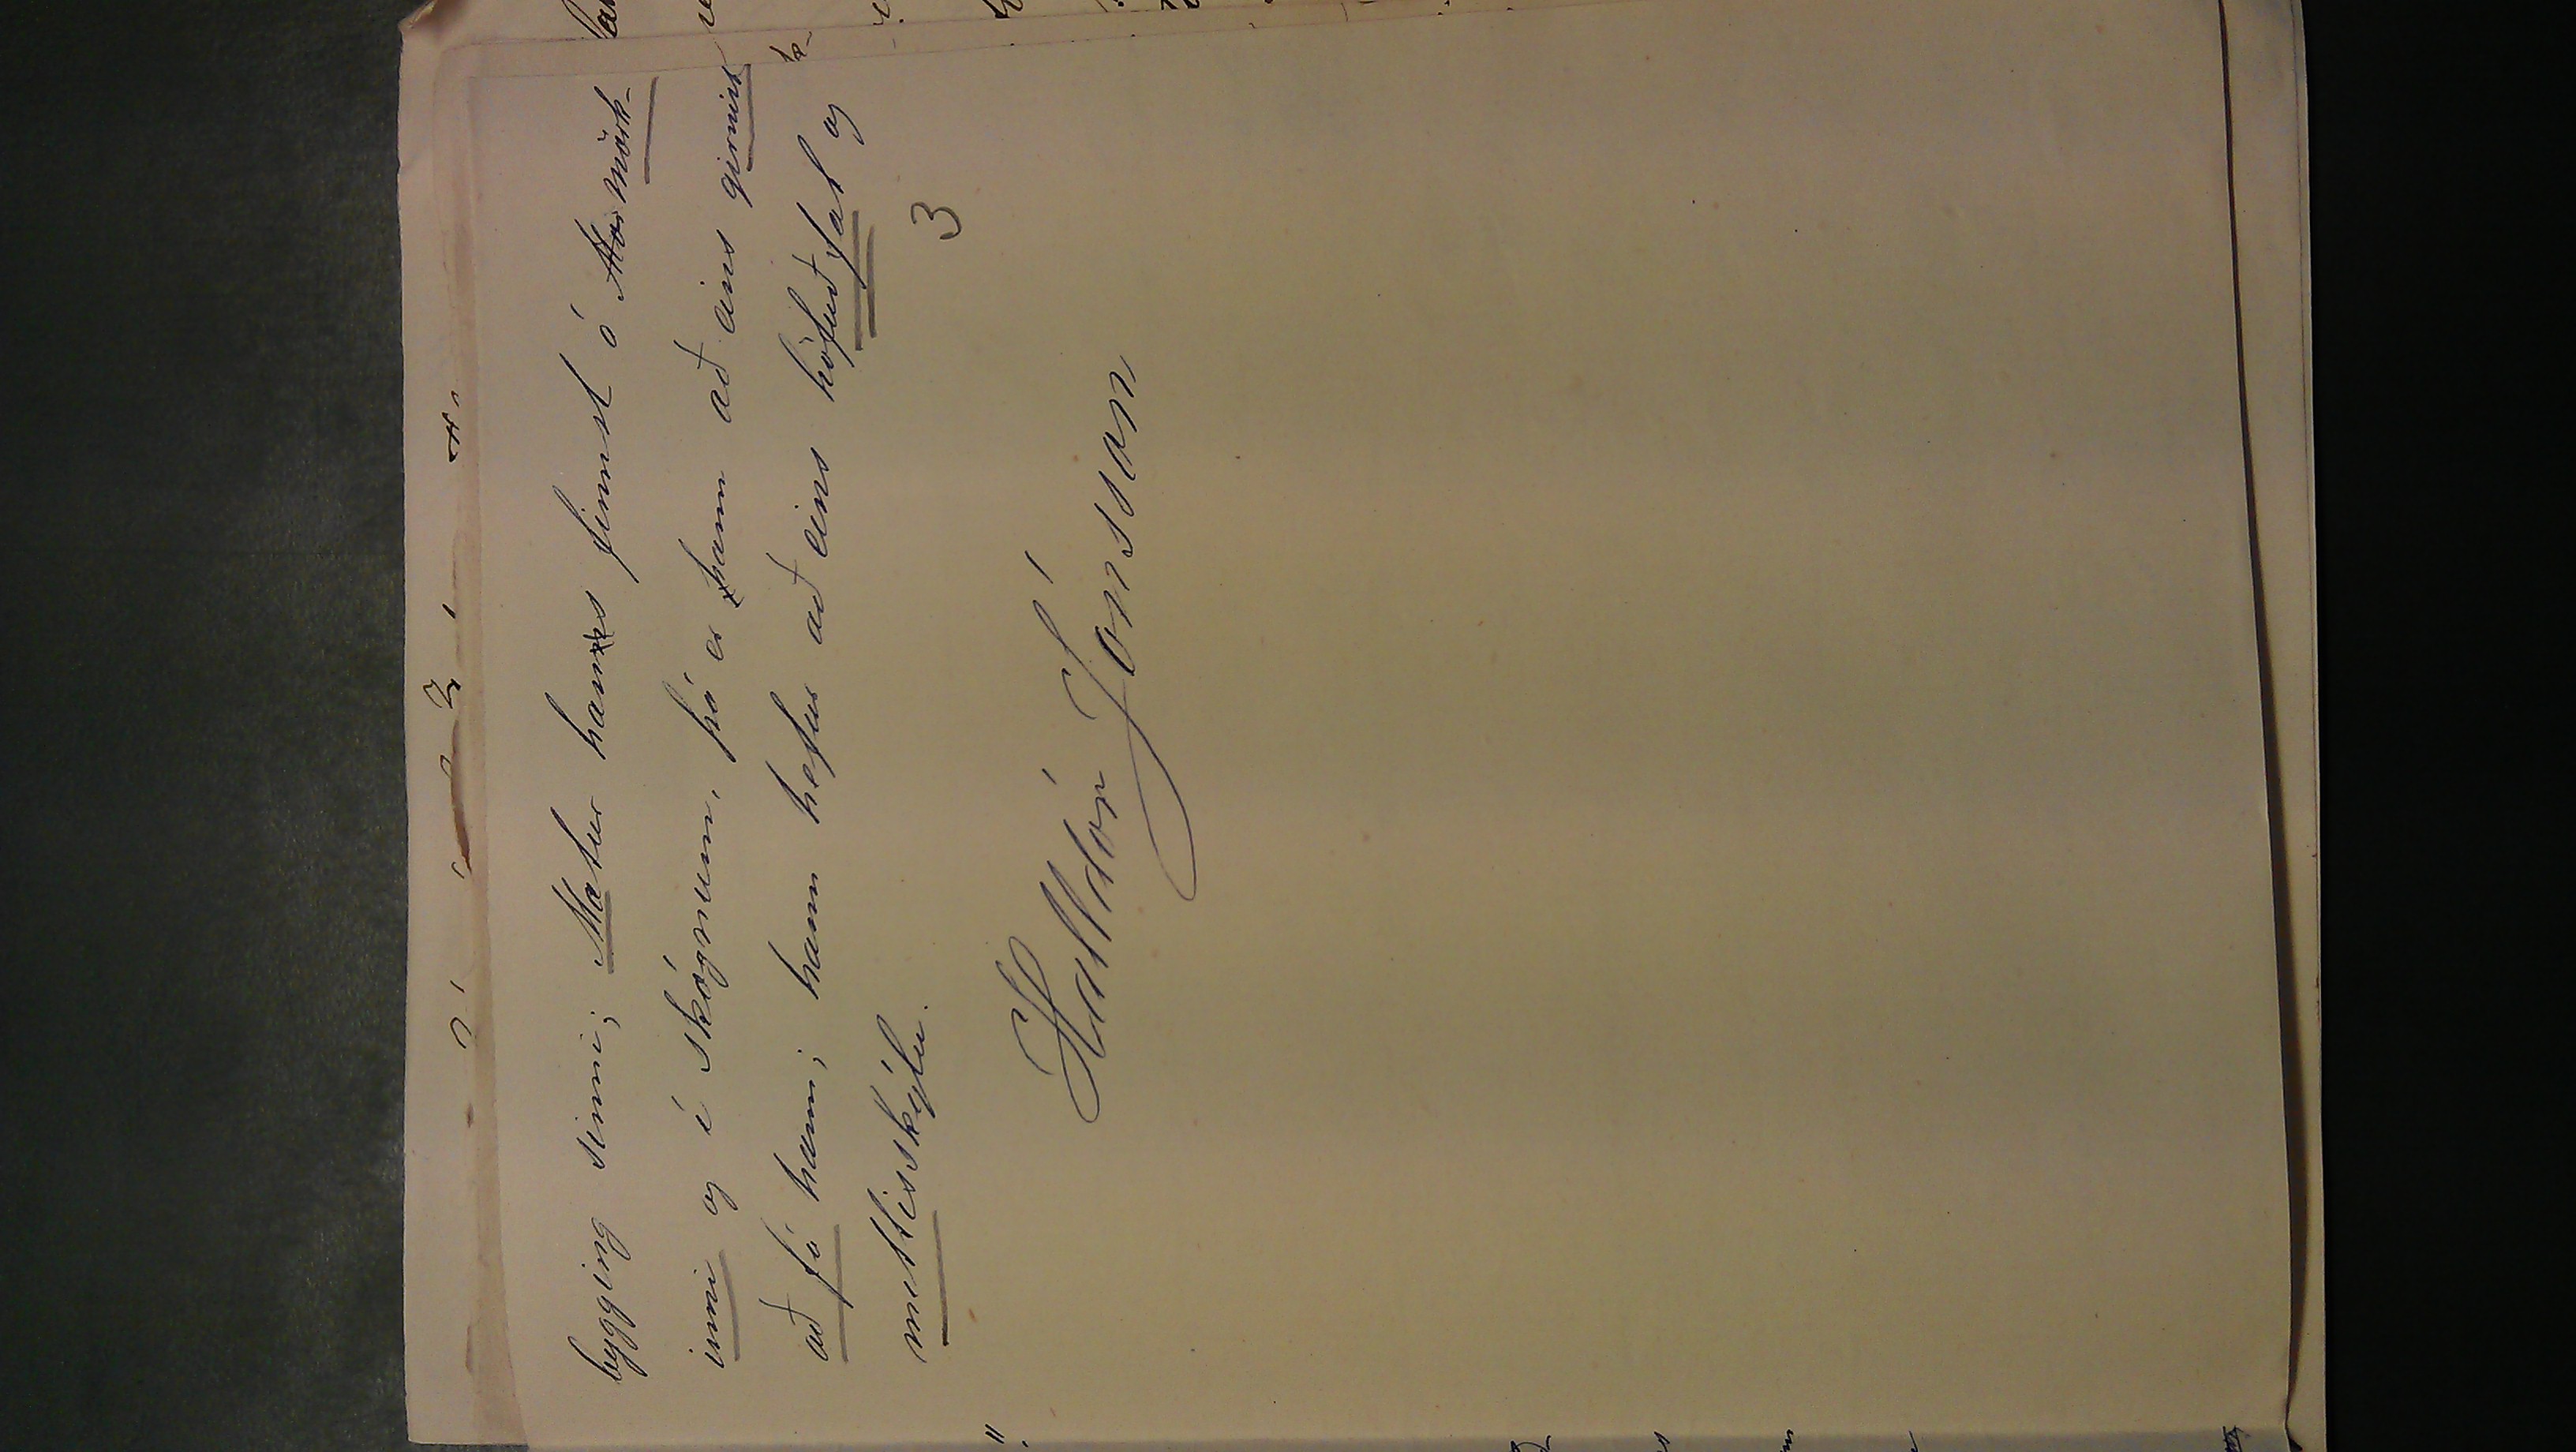 bygging sinni; Matur hans finnst á mörk-
inni og í skógnum, þó er hann að eins girnist
að fá hann; hann hefur að eins höfuðfat og
mittisskýlu.
3
Halldór Jónsson